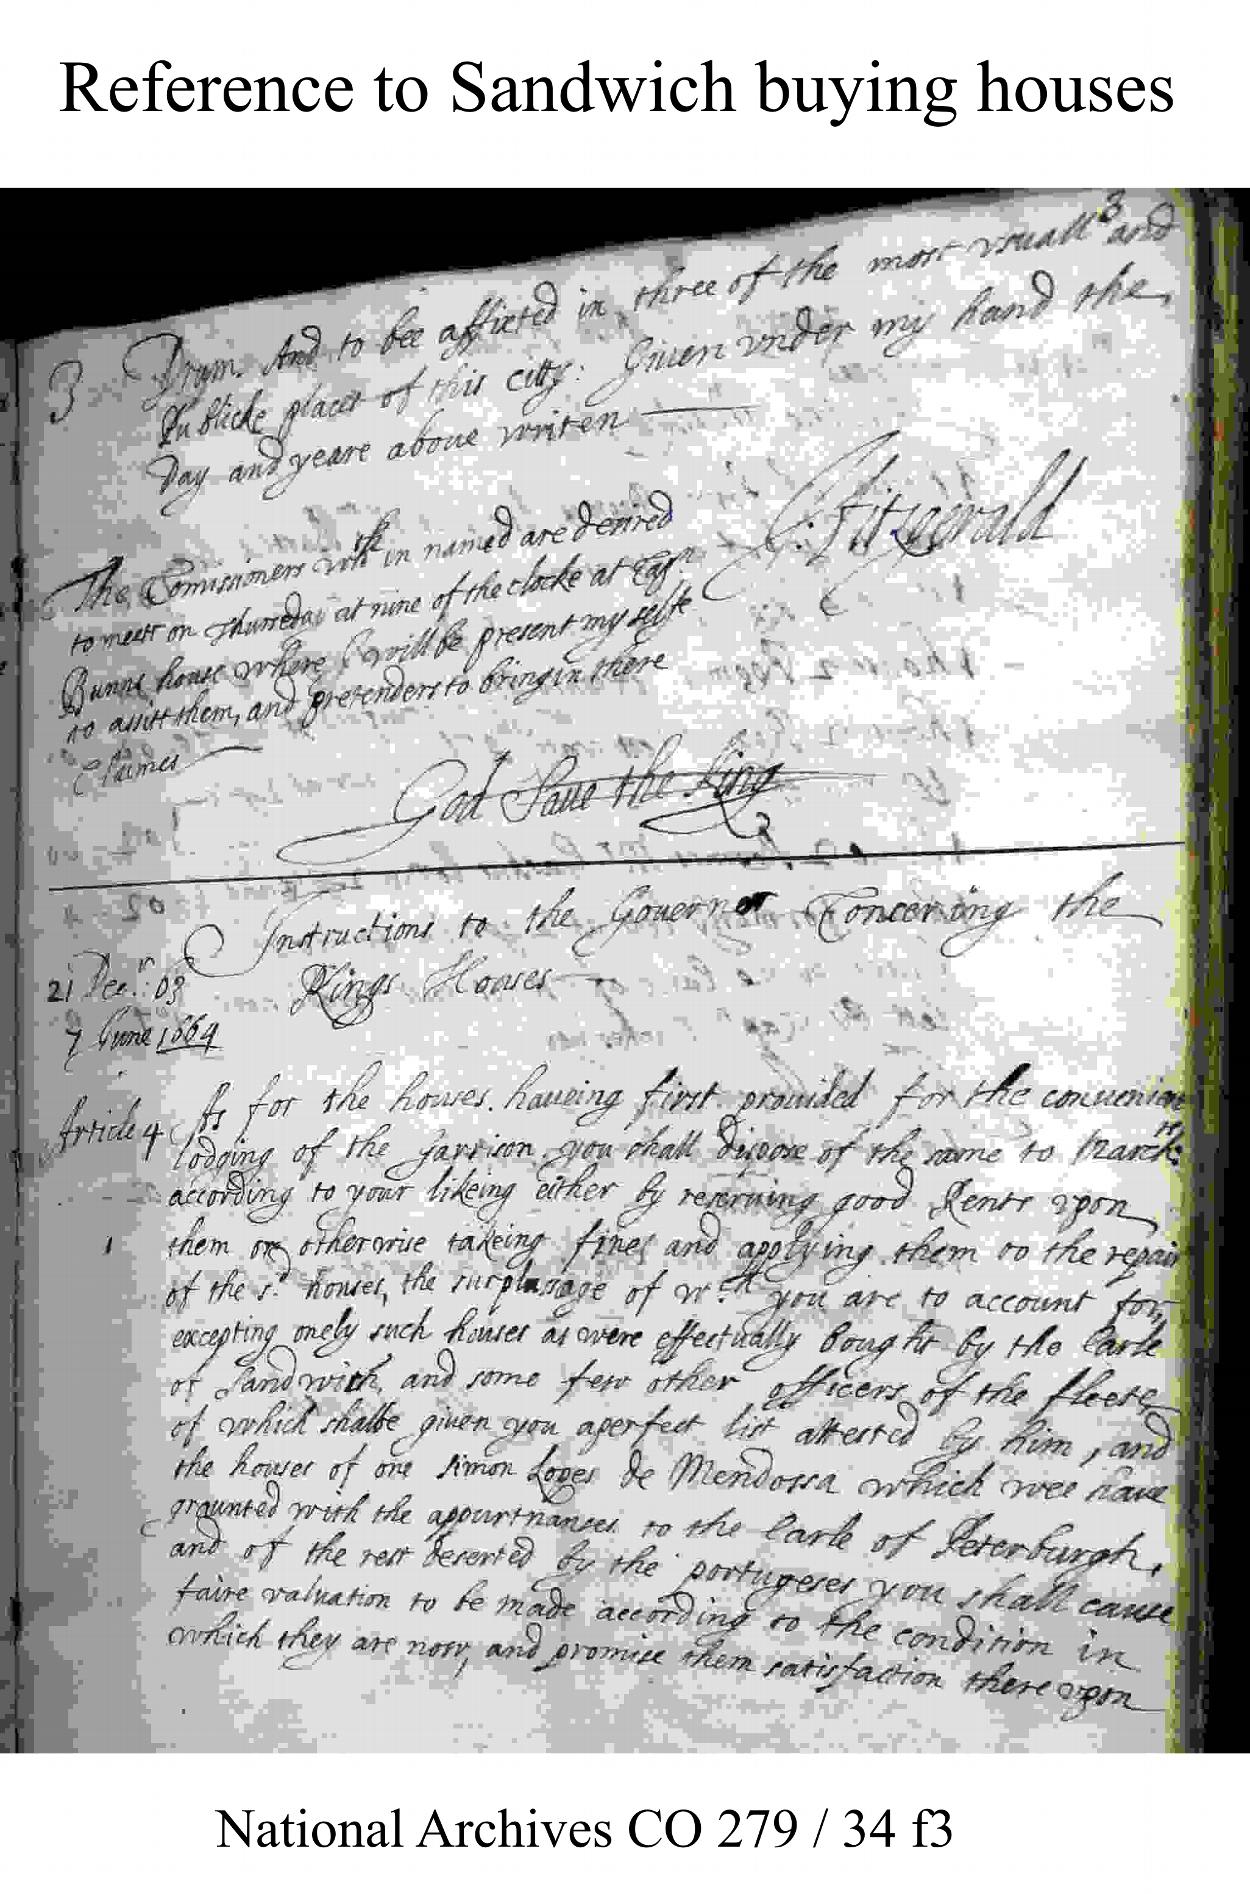 Reference to Sandwich buying houses
3
3
Drum. And to bee affixed in three of the most vsuall and
Publicke places of this citty: Given vnder my hand the
Day and yeare aboue writen
J: Fitzgerald
The Comissioners wth in named are desired
to meett on Thursday at nine of the clocke at Capn
Bunns house where I will be present my selfe
to assist them, and pretenders to bring in there
Claimes
God Saue the King
Instructions to the Gouernor Concerning the
Kings Houses
21 Decr: 03
7 June 1664
Article 4 As for the houses haueing first prouided for the conuenient
lodging of the garrison you shall dispose of the same to March:ts
according to your likeing either by reseruing good Rents vpon
them or otherwise takeing fines and applying them to the repair
of the sd houses, the surplussage of wch you are to account for,
excepting onely such houses as were effectually bought by the Earle
of Sandwich, and some few other officers of the fleete
of which shalbe given you a perfect list attested by him, and
the houses of one Simon Lopes de Mendossa which wee haue
graunted with the appurtnanses to the Earle of Peterburgh,
and of the rest deserted by the portugeses you shall cause
faire valuation to be made according to the condition in
which they are now, and promise them satisfaction there vpon
National Archives CO 279 / 34 f3